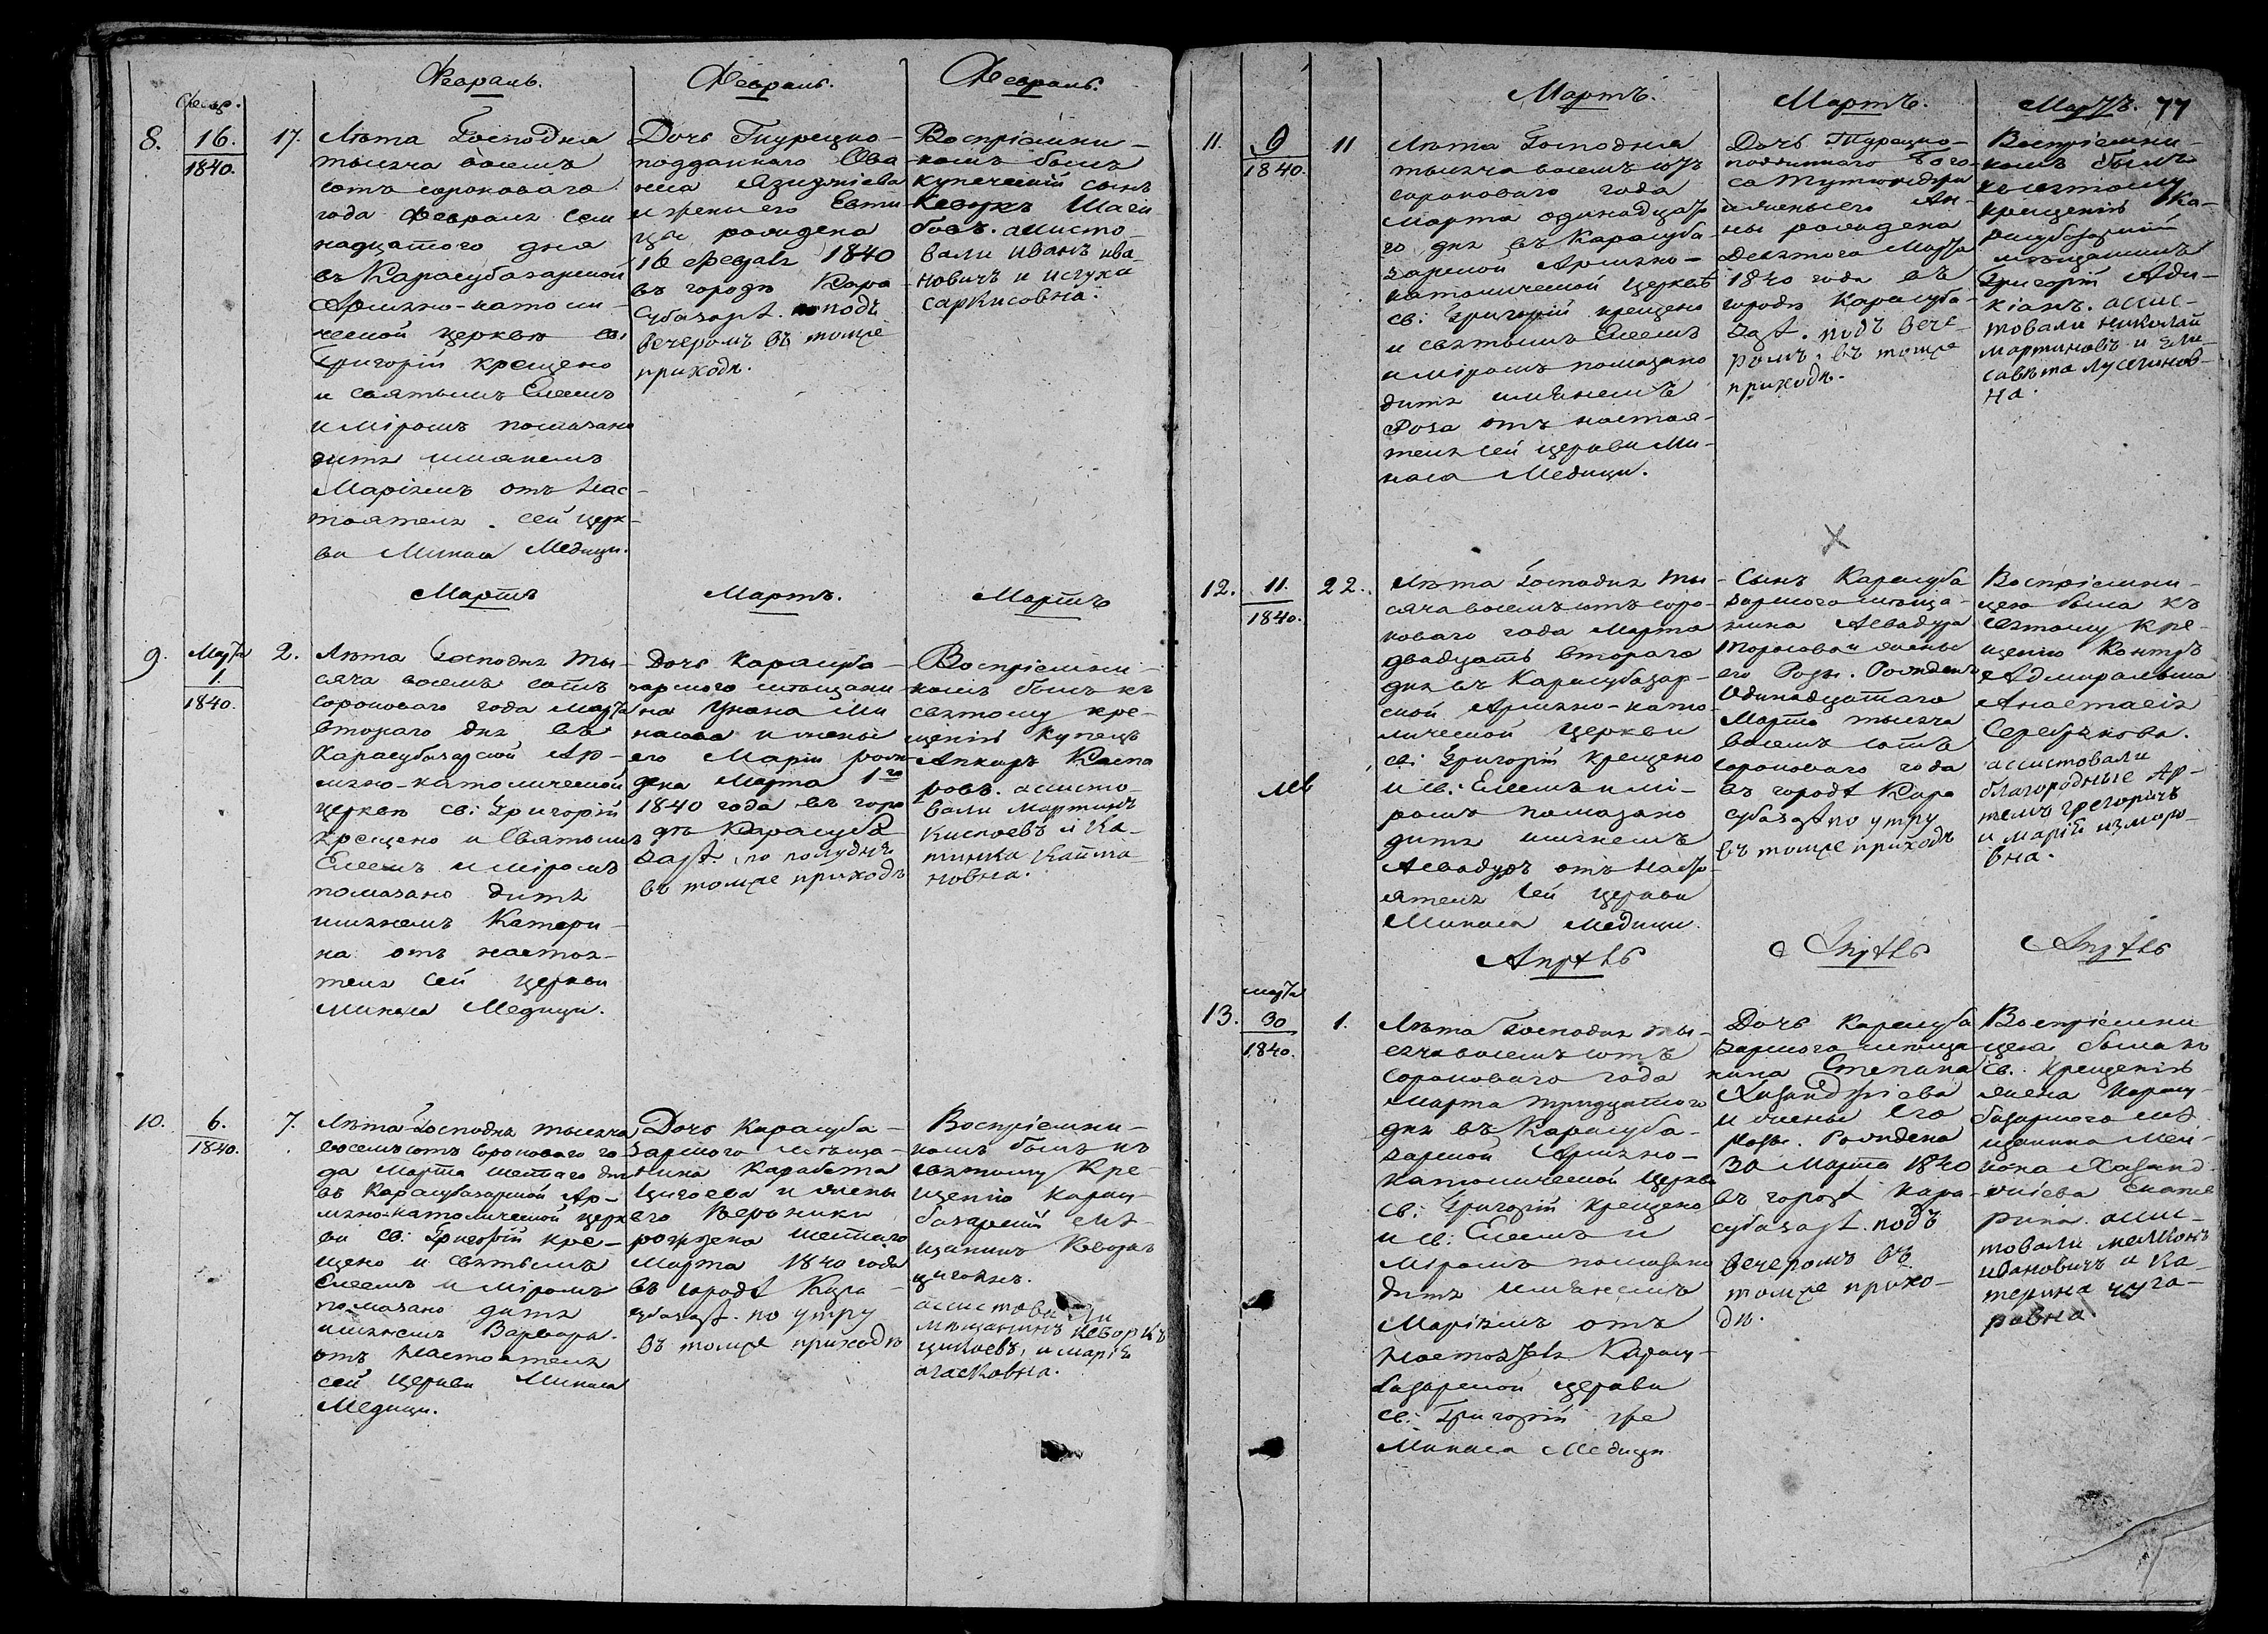 Февраль.
Февраль.
Февраль.
Февр.
8.
16.
1840.
17.
Лѣта Господня
тысяча восемь
сотъ сороковаго
года Февраля сем
надцатаго дня
въ Карасубазарской
Армяно-католи-
ческой церквѣ св:
Григорій крещено
и святымъ Елеемъ
и міромъ помазано
дитя имянемъ
Маріямъ отъ нас-
тоятеля сей церк-
ви Минаса Медици.
Дочь Турецко-
подданнаго Ова
неса
и жены его
рождена
16 Февраля 1840
въ городѣ Кара
субазарѣ. подъ
вечеромъ въ томже
приходѣ.
Воспріемни-
комъ былъ
купеческій сынъ
Кеворкъ Шаги-
бовъ. ассисто-
вали Иванъ Ива-
новичъ и Исгуки
Саркисовна.
Мартъ
Мартъ.
Мартъ
9.
Марта
1.
1840.
2.
Лѣта Господня ты-
сяча восемь сотъ
сороковаго года Марта
втораго дня въ
Карасубазарской Ар-
мяно-католической
церквѣ св: Григорій
крещено и Святымъ
Елеемъ и міромъ
помазано дитя
имянемъ Катери-
на отъ настоя-
теля сей церкви
Минаса Медици.
Дочь Карасуба-
зарскаго мѣщани
на Унана Ми
наева и жены
его Маріи рож
дена Марта 1го
1840 года въ горо
дѣ Карасуба-
зарѣ, по полудни
въ томже приходѣ
Воспріемни-
комъ былъ къ
святому кре-
щенію купецъ
Апкаръ Каспа
ровъ. ассисто-
вали Мартинъ
Кислаевъ и Ка-
тинка Кайта-
новна.
10.
6.
1840.
7.
Лѣта Господня тысяча
восемьсотъ сороковаго го
да Марта шестаго дня
въ Карасубазарской Ар-
мяно-католической церк
ви св: Григорій кре-
щено и святымъ
Елеемъ и міромъ
помазано дитя
имянемъ Варвара.
отъ настоятеля
сей церкви Минаса
Медици.
Дочь Карасуба-
зарскаго мѣща-
нина Карабета
Цигоева и жены
его Вероники
рождена шестаго
Марта 1840 года
въ городѣ Кара
субазарѣ. по утру
въ томже приходѣ
Воспріемни-
комъ былъ къ
святому Кре-
щенію Карасу-
базарскій мѣ-
щанинъ Кеворкъ
Цигоянъ.
ассистовали
мѣщанинъ Кеворкъ
и Марія
Агасковна.
Мартъ.
Мартъ.
Мартъ.
77
11.
9
1840.
11
Лѣта Господня
тысяча восемьсотъ
сороковаго года
Марта одинадцата
го дня въ Карасуба-
зарской Армяно-
католической Церквѣ
св: Григорій крещено
и святымъ Елеемъ
и міромъ помазано
дитя имянемъ
Роза отъ настоя-
теля сей церкви Ми-
наса Медици.
Дочь Турецко-
подданнаго Бого-
са
и жены его Ан-
ны рождена
девятаго Марта
1840 года въ
городѣ Карасуба-
зарѣ. подъ вече-
ромъ, въ томже
приходѣ.
Воспріемни-
комъ былъ
къ святому
крещенію Ка-
расубазарскій
мѣщанинъ
Григорій
ассис-
товали Николай
Мартиновъ и Ели-
савѣта Лусегинов-
на.
12.
11.
1840.
22.
Лѣта Господня ты-
сяча восемь сотъ соро-
коваго года Марта
двадцать втораго
дня въ Карасубазар-
ской Армяно-като-
лической Церкви
св: Григорій крещено
и св: Елеемъ и мі-
ромъ помазано
дитя имянемъ
Асвадуръ отъ насто
ятеля сей церкви
Минаса Медици.
Сынъ Карасуба
зарскаго мѣща-
нина Асвадура
и жены
его Розы. Рожденъ
Одинадцатаго
Марта тысяча
восемь сотъ
сороковаго года
въ городѣ Кара
субазарѣ по утру
въ томже приходѣ
Воспріемни-
цею была къ
святому кре-
щенію Контръ
Адмиральша
Анастасія
Серебрякова.
ассистовали
благородные Ар-
темъ Грегоричъ
и Марія
вна.
Апрѣль
Апрѣль
Апрѣль
13.
марта
30
1840.
1.
Лѣта Господня ты-
сяча восемь сотъ
сороковаго года
Марта тридцатаго
дня въ Карасуба-
зарской Армяно-
католической Церкви
св: Григорій крещено
и св: Елеемъ и
міромъ помазано
дитя имянемъ
Маріямъ отъ
настоятеля Карасу-
базарской церкви
св: Григорій
Минаса Медици
Дочь Карасуба
зарскаго мѣща-
нина Степана
Хазанджіева
и жены его
Розы. Рождена
30 Марта 1840
въ городѣ Кара-
субазарѣ. подъ
вечеромъ въ
томже прихо-
дѣ.
Воспріемни
цею была къ
св. крещенію
жена Карасу-
базарскаго мѣ
щанина Мел-
кона Хазанд-
жіева Екате
рина. ассис-
товали Мелконъ
Ивановичъ и Ка-
терина
ровна.